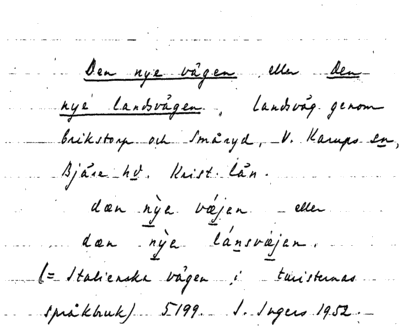 Den nye vägen eller Den
nye landsvägen. Landsväg genom
Erikstorp och Småryd, V. Karups sn,
Bjäre hd. Krist. län.
dæn nỳe væjen eller
dæn nỳe lánsvæjen.
(= Italienska vägen i turisternas
språkbruk) 5199. I. Ingers 1952.